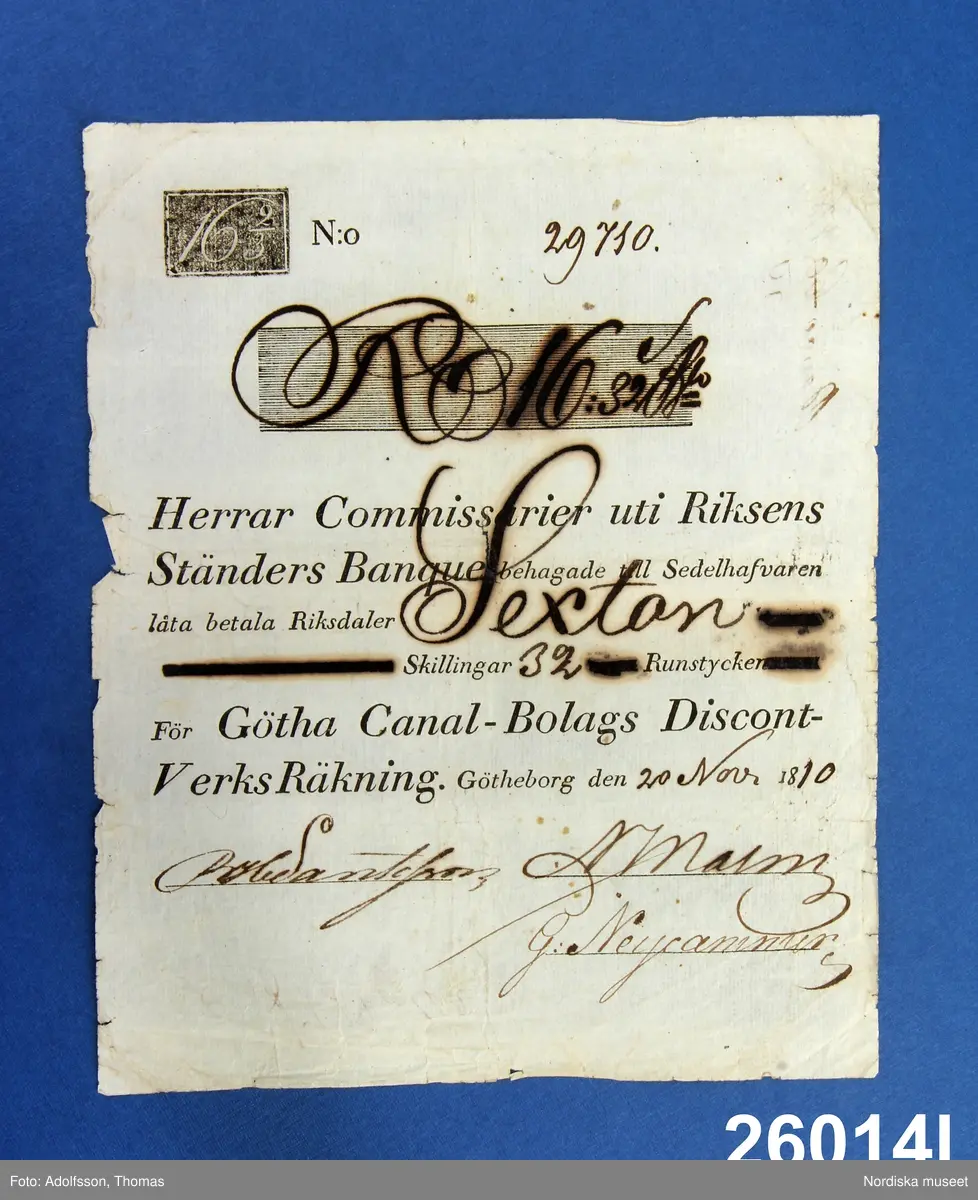 16 2/3 N:o 29710.
Rd 16:32 ſ Bco
Herrar Commissarier uti Riksens
Ständers Banque behagade till Sedelhafvaren
låta betala Riksdaler Sexton
Skillingar 32 Runstycken
För Götha Canal-Bolags Discont-
Verks Räkning. Götheborg den 20 Nov: 1810
A Malm
G: Neijcammer
26014I
Foto: Adolfsson, Thomas Nordiska museet